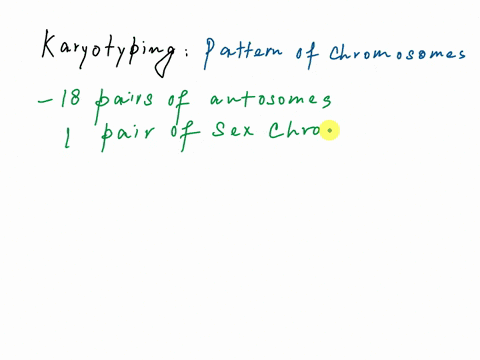 Karyotyping: Pattern of chromosomes
- 18 pairs of autosomes
1 pair of sex chro